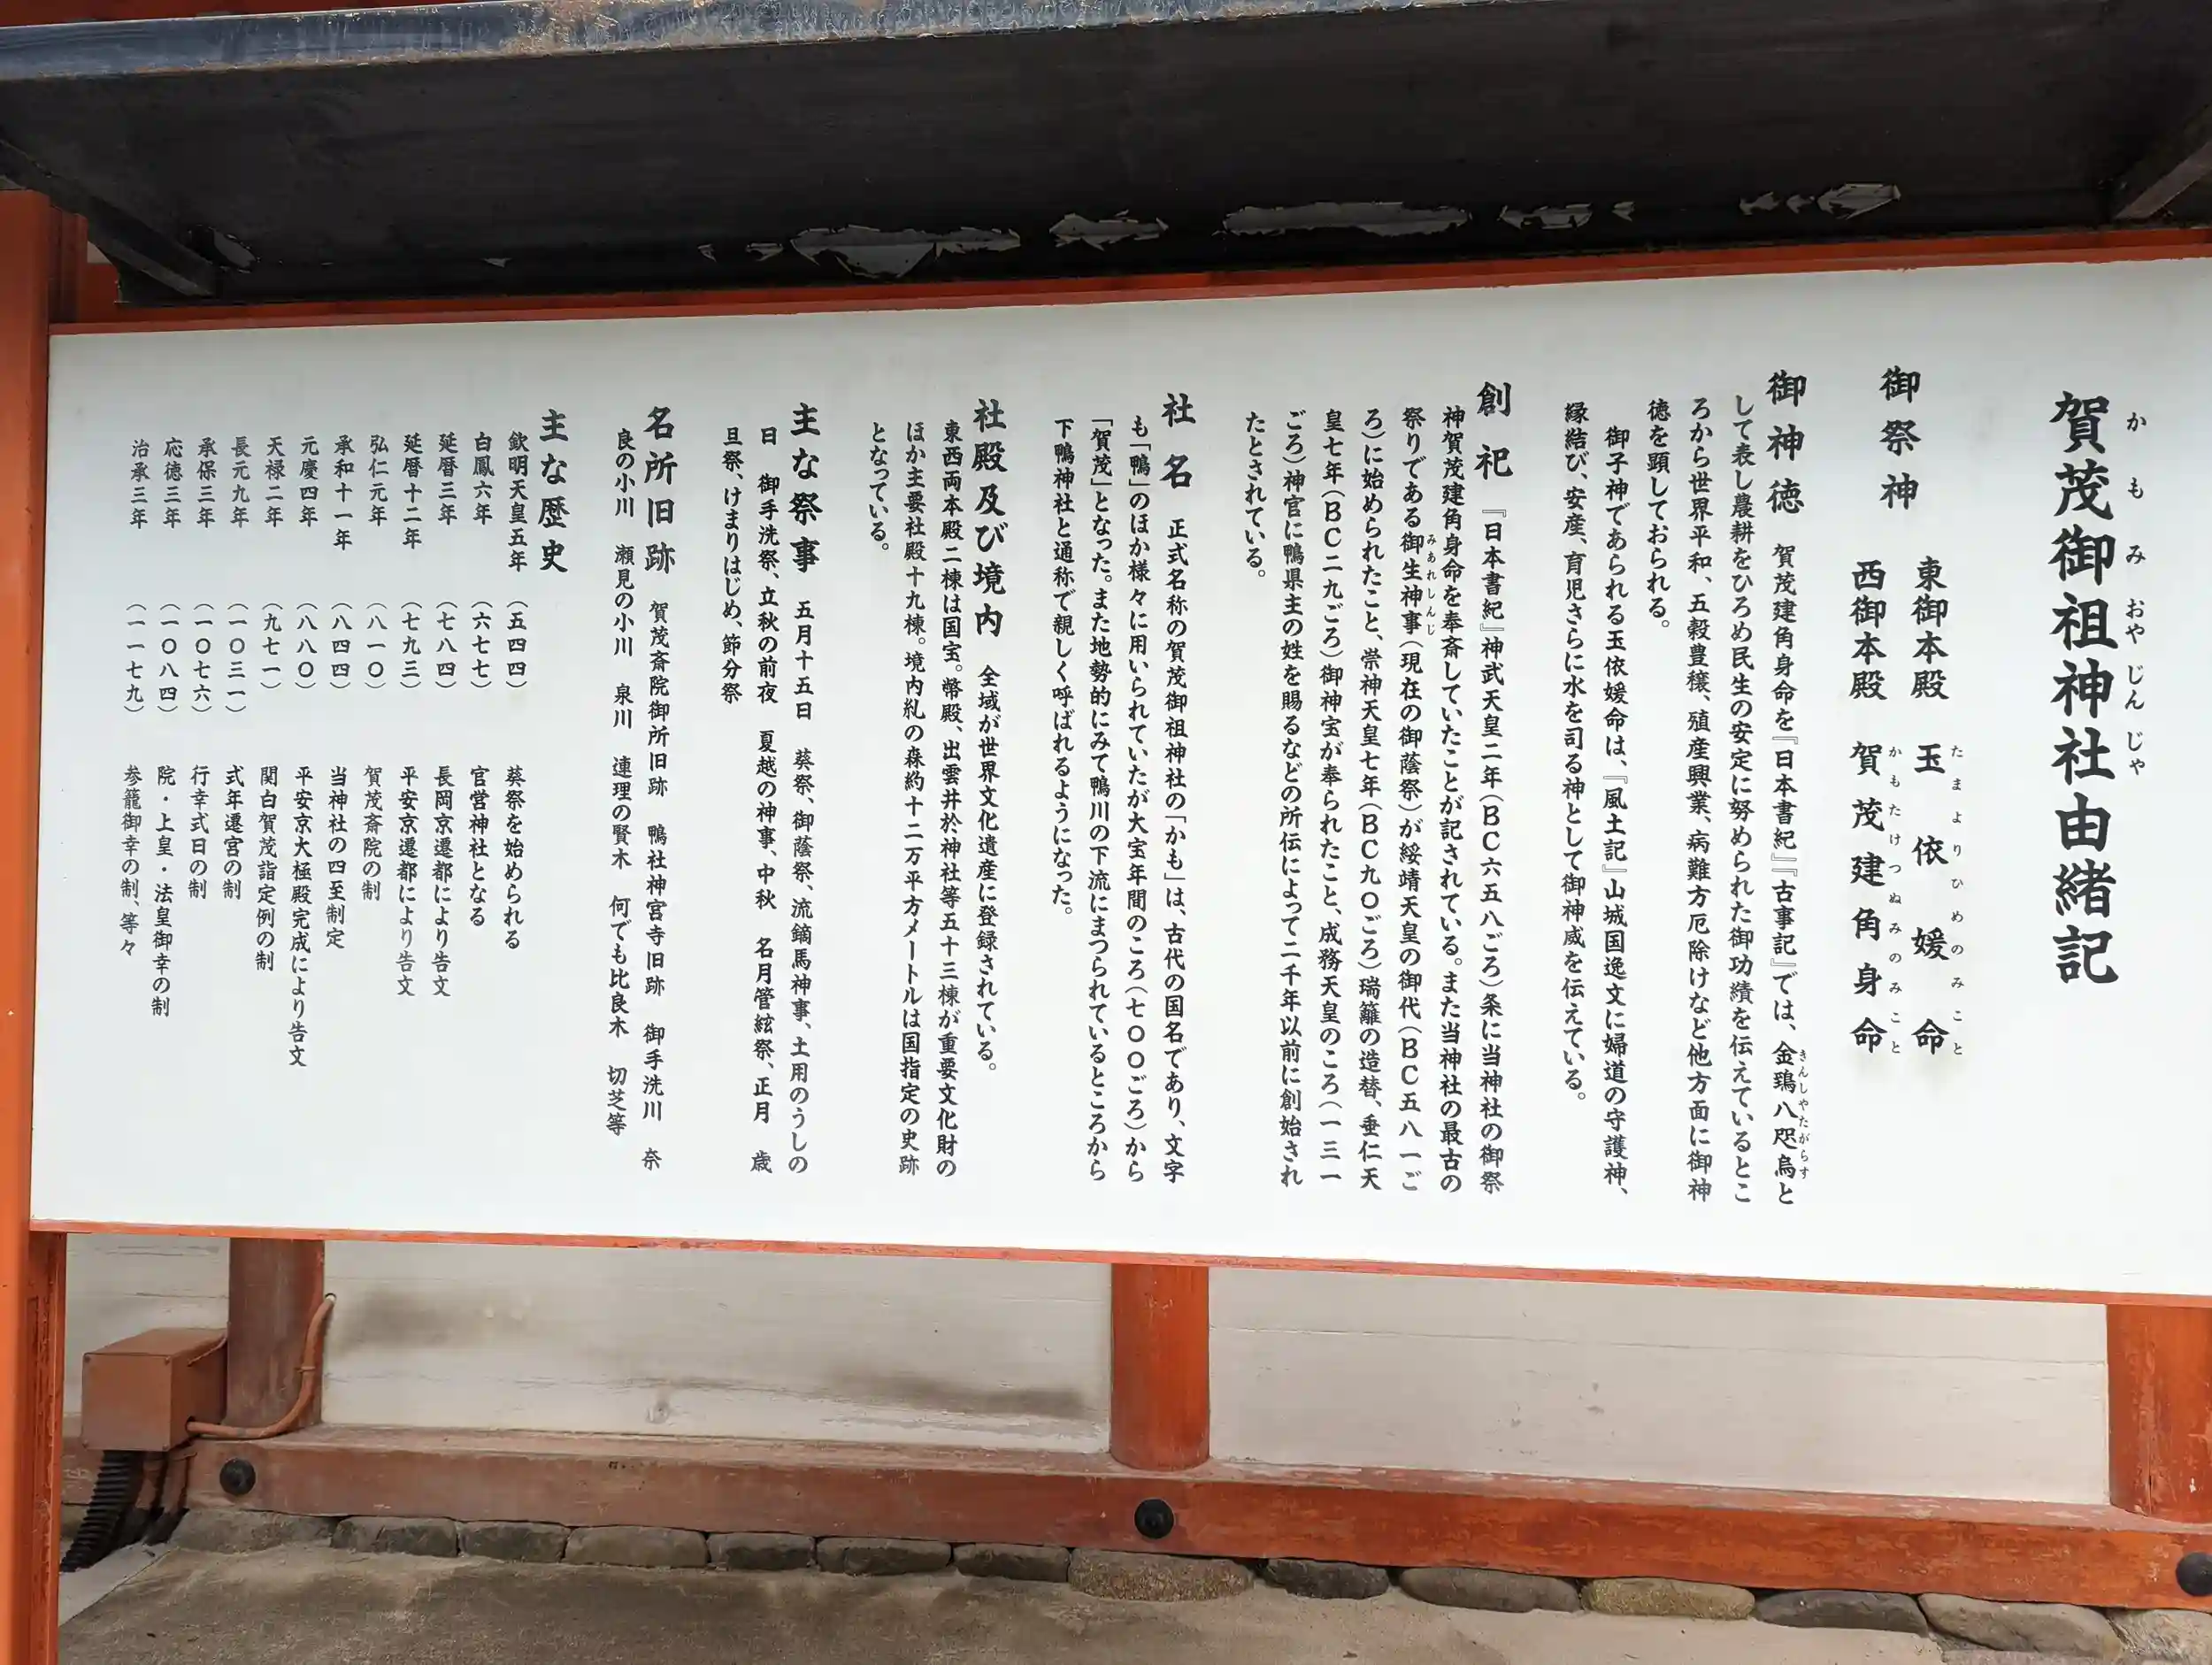 賀茂御祖神社由緒記
かもみおやじんじゃ
御祭神
東御本殿 玉依媛命
たまよりひめのみこと
西御本殿 賀茂建角身命
かもたけつぬみのみこと
御神徳 賀茂建角身命を『日本書紀』『古事記』では、金鵄八咫烏と
きんしやたがらす
して表し農耕をひろめ民生の安定に努められた御功績を伝えているとこ
ろから世界平和、五穀豊穣、殖産興業、病難方厄除けなど他方面に御神
徳を顕しておられる。
御子神であられる玉依媛命は、『風土記』山城国逸文に婦道の守護神、
縁結び、安産、育児さらに水を司る神として御神威を伝えている。
創祀 『日本書紀』神武天皇二年(BC六五八ごろ)条に当神社の御祭
神賀茂建角身命を奉斎していたことが記されている。また当神社の最古の
祭りである御生神事(現在の御蔭祭)が綏靖天皇の御代(BC五八一ご
みあれしんじ
ろ)に始められたこと、崇神天皇七年(BC九〇ごろ)瑞籬の造替、垂仁天
皇七年(BC二九ごろ)御神宝が奉られたこと、成務天皇のころ(一三一
ごろ)神官に鴨県主の姓を賜るなどの所伝によって二千年以前に創始され
たとされている。
社名 正式名称の賀茂御祖神社の「かも」は、古代の国名であり、文字
も「鴨」のほか様々に用いられていたが大宝年間のころ(七〇〇ごろ)から
「賀茂」となった。また地勢的にみて鴨川の下流にまつられているところから
下鴨神社と通称で親しく呼ばれるようになった。
社殿及び境内 全域が世界文化遺産に登録されている。
東西両本殿二棟は国宝。幣殿、出雲井於神社等五十三棟が重要文化財の
ほか主要社殿十九棟。境内糺の森約十二万平方メートルは国指定の史跡
となっている。
主な祭事 五月十五日 葵祭、御蔭祭、流鏑馬神事、土用のうしの
日 御手洗祭、立秋の前夜 夏越の神事、中秋 名月管絃祭、正月 歳
旦祭、けまりはじめ、節分祭
名所旧跡 賀茂斎院御所旧跡 鴨社神宮寺旧跡 御手洗川 奈
良の小川 瀬見の小川 泉川 連理の賢木 何でも比良木 切芝等
主な歴史
欽明天皇五年 (五四四) 葵祭を始められる
白鳳六年 (六七七) 官営神社となる
延暦三年 (七八四) 長岡京遷都により告文
延暦十二年 (七九三) 平安京遷都により告文
弘仁元年 (八一〇) 賀茂斎院の制
承和十一年 (八四四) 当神社の四至制定
元慶四年 (八八〇) 平安京大極殿完成により告文
天禄二年 (九七一) 関白賀茂詣定例の制
長元九年 (一〇三一) 式年遷宮の制
承保三年 (一〇七六) 行幸式日の制
応徳三年 (一〇八四) 院・上皇・法皇御幸の制
治承三年 (一一七九) 参籠御幸の制、等々